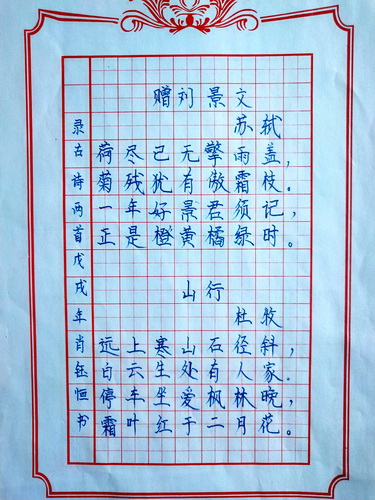 赠刘景文
苏轼
荷尽已无擎雨盖，
菊残犹有傲霜枝。
一年好景君须记，
正是橙黄橘绿时。
山行
杜牧
远上寒山石径斜，
白云生处有人家.
停车坐爱枫林晚，
霜叶红于二月花。
录古诗两首戊戌年肖钰恒书